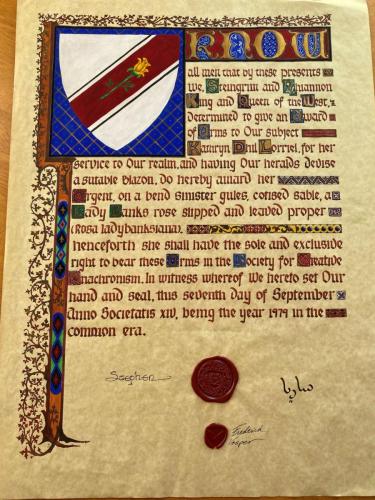 KNOW
all men that by these presents
We, Steingrim and Rhiannon
King and Queen of the West,
determined to give an Award
of Arms to Our subject
Kathryn Dhil Lorriel, for her
service to Our realm, and having Our heralds devise
a sutable blazon, do hereby award her
Argent, on a bend sinister gules, cotised sable, a
Lady Banks rose slipped and leaved proper
(Rosa ladybanksiana),
henceforth she shall have the sole and exclusive
right to bear these Arms in the Society for Creative
Anachronism. In witness whereof We hereto set Our
hand and seal, this seventh day of September
Anno Societatis XIV, being the year 1979 in the
common era.
Frederick